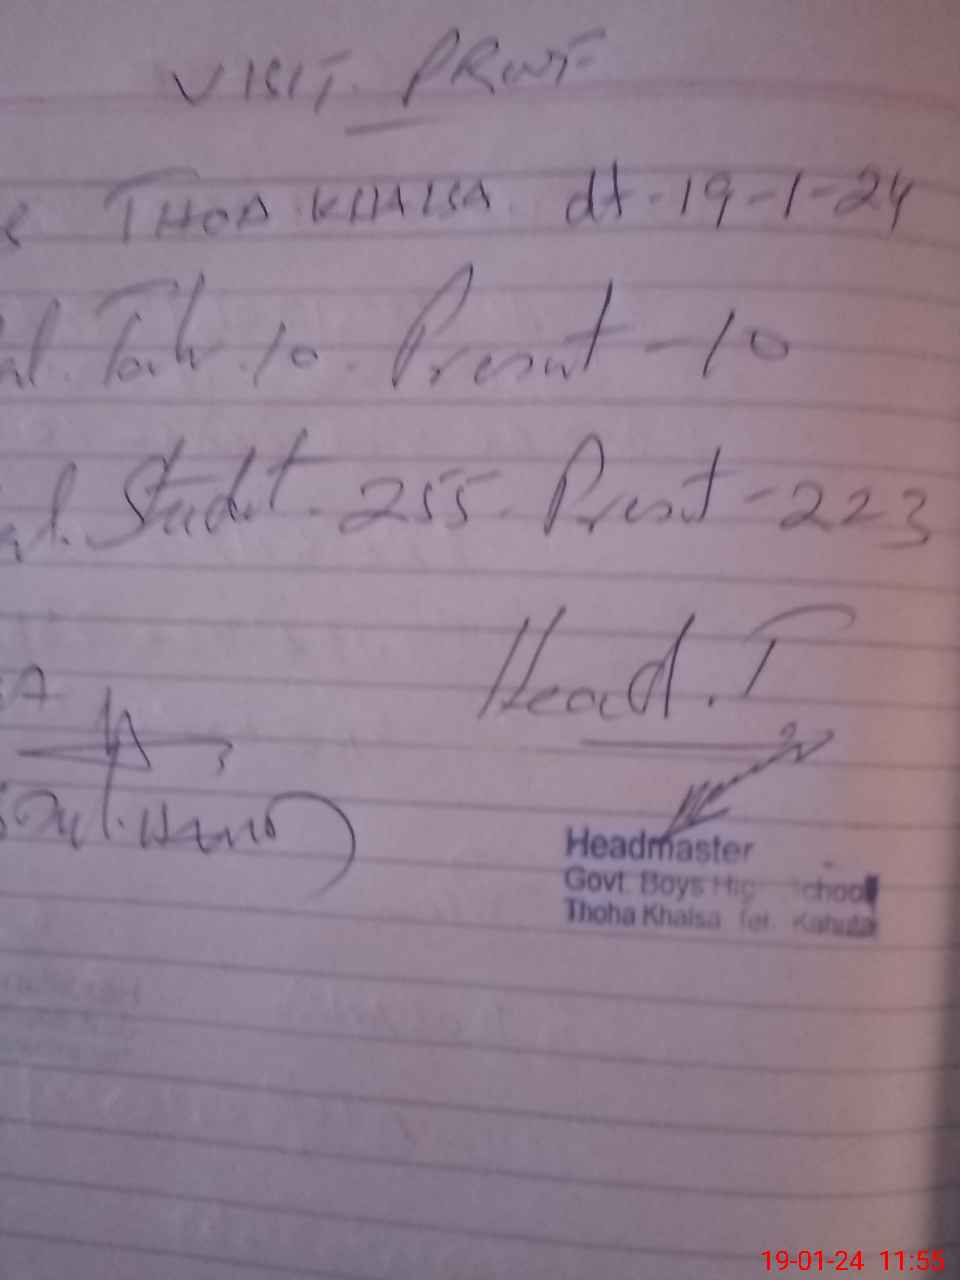 VISIT. PROOF
THOA KHALSA dt-19-1-24
10. Present - 10
Studt. 255. Presnt - 223
Head. T
Headmaster
Govt. Boys Hig chool
Thoha Khalsa Tel. Kahuta
19-01-24 11:55